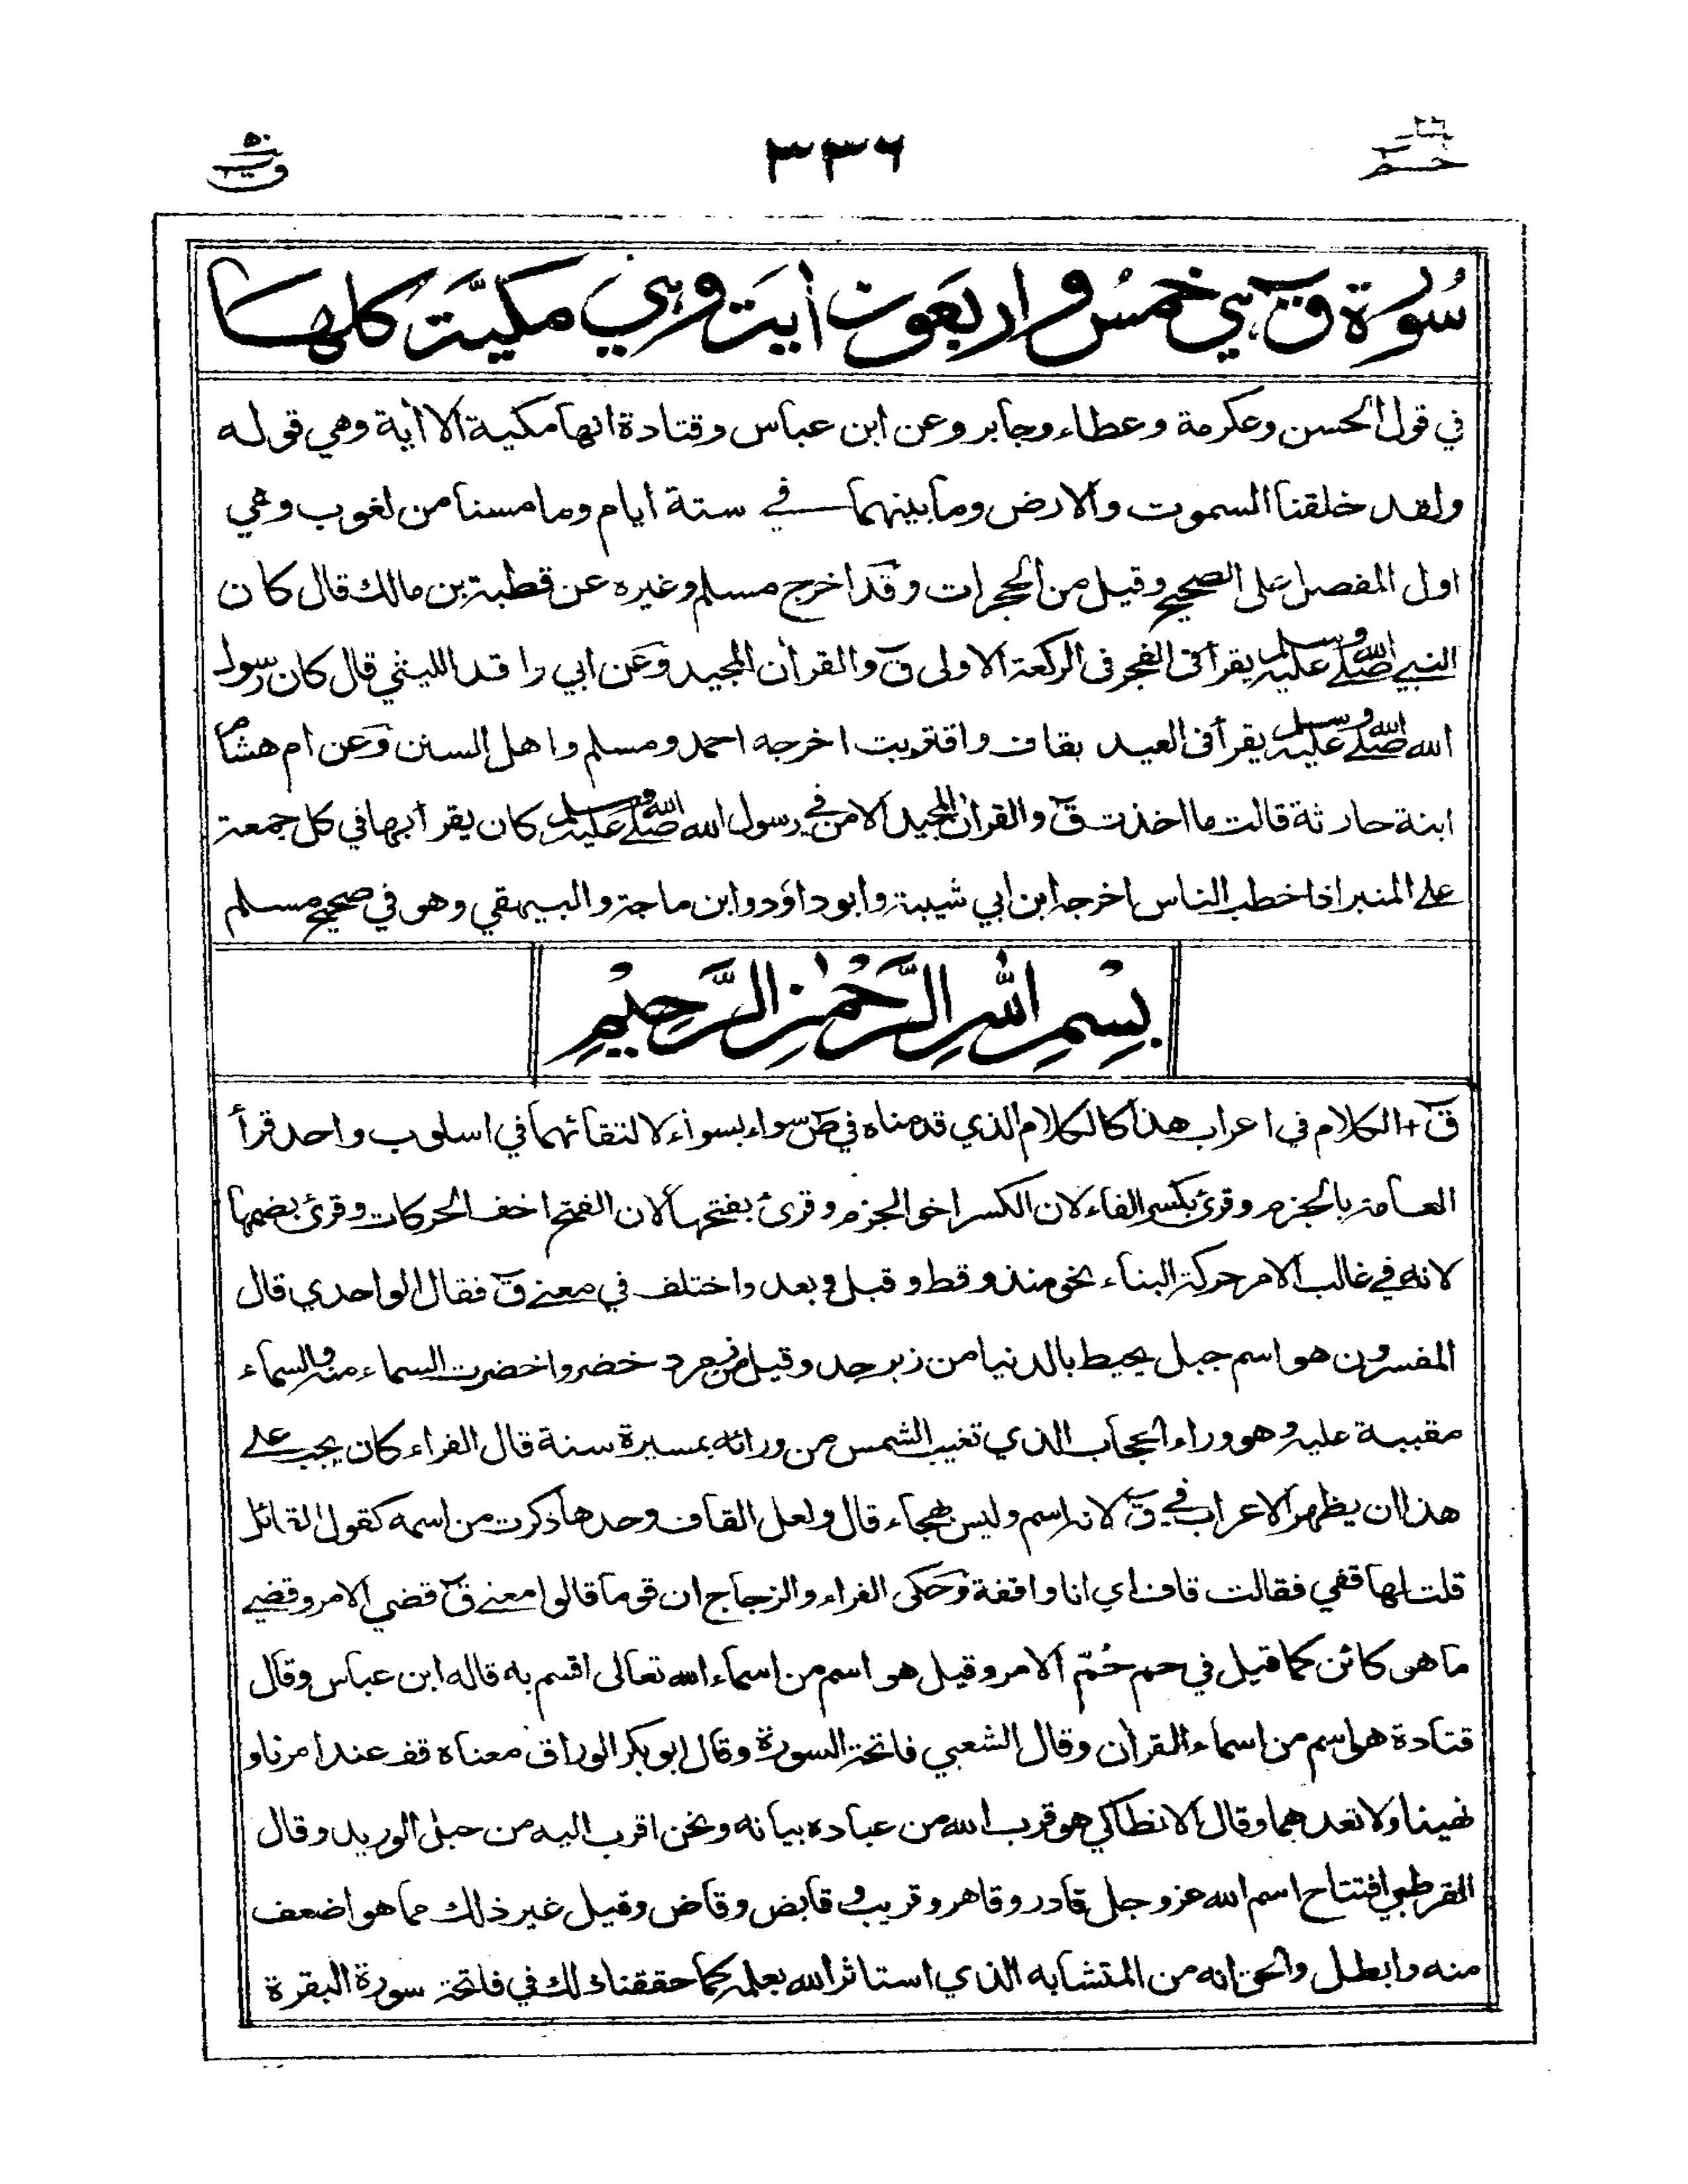 حـم ٢٦
٣٣٦
ق ٥٠
سُورة ق هي خمس واربعون اية وهي مكيّة كلها
في قول الحسن وعكرمة وعطاء وجابر وعن ابن عباس وقتادة انها مكية الا أية وهي قوله
ولقد خلقنا السموت والارض وما بينهما في ستة ايام وما مسنا من لغوب وهي
اول المفصل على الصحيح وقيل من الحجرات وقد اخرج مسلم وغيره عن قطبة بن مالك قال كان
النبي صلى الله عليه وسلم يقرأ في الفجر في الركعة الاولى قٓ والقرأن المجيد وعن ابي واقد الليثي قال كان رسول
الله صلى الله عليه وسلم يقرأ في العيد بقاف واقتربت اخرجه احمد ومسلم واهل السنن وعن ام هشام
ابنة حارثة قالت ما اخذت قٓ والقرأن المجيد الا من في رسول الله صلى الله عليه وسلم كان يقرأ بها في كل جمعة
على المنبر اذا خطب الناس اخرجه ابن ابي شيبة وابو داؤد وابن ماجة والبيهقي وهو في صحيح مسلم
بِسْمِ اللهِ الرَّحْمٰنِ الرَّحِيْمِ
قٓ + الكلام في اعراب هذا كالكلام الذي قدمناه في صٓ سواء بسواء لالتقائهما في اسلوب واحد قرأ
العامة بالجزم وقرئ بكسر الفاء لان الكسر اخو الجزم وقرئ بفتحها لان الفتح اخف الحركات وقرئ بضمها
لانه في غالب الامر حركة البناء نحو منذ وقط وقبل وبعد واختلف في معنى قٓ فقال الواحدي قال
المفسرون هو اسم جبل يحيط بالدنيا من زبرجد وقيل من زمرد خضر واخضرت السماء منه والسماء
مقببة عليه وهو وراء الحجاب الذي تغيب الشمس من ورائه بمسيرة سنة قال الفراء كان يجب على
هذا ان يظهر الاعراب في قٓ لانه اسم وليس بهجاء قال ولعل القاف وحدها ذكرت من اسمه كقول القائل
قلت لها قفي فقالت قاف اي انا واقفة وحكى الفراء والزجاج ان قوما قالوا معنى قٓ قضي الامر وقضي
ما هو كائن كما قيل في حم حُمّ الامر وقيل هو اسم من اسماء الله تعالى اقسم به قاله ابن عباس وقال
قتادة هو اسم من اسماء القرأن وقال الشعبي فاتحة السورة وقال ابو بكر الوراق معناه قف عند امرنا و
نهينا ولا تعدهما وقال الانطاكي هو قرب الله من عباده بيانه ونحن اقرب اليه من حبل الوريد وقال
القرطبي افتتاح اسم الله عز وجل قادر وقاهر وقريب وقابض وقاض وقيل غير ذلك مما هو اضعف
منه وابطل والحق انه من المتشابه الذي استاثر الله بعلمه كما حققناه لك في فاتحة سورة البقرة